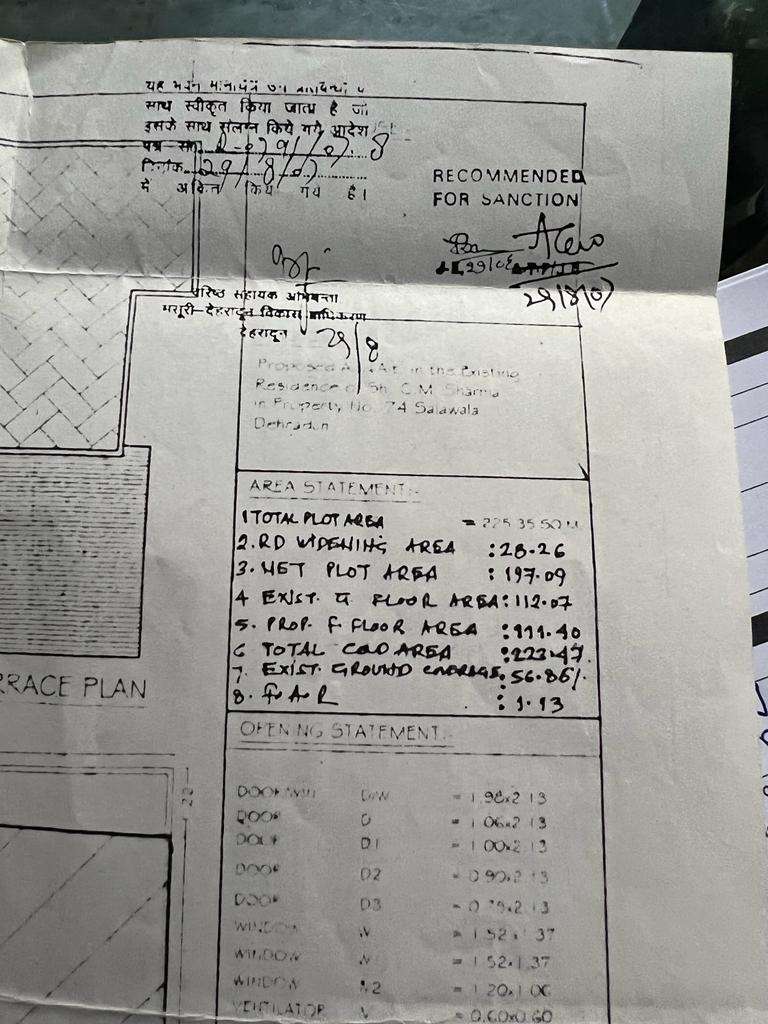 यह भवन मानचित्र उन शर्तों
साथ स्वीकृत किया जाता है जो
इसके साथ संलग्न किये गये आदेश
पत्र
दिनांक 29/8/07
में अंकित किये गये है।
RECOMMENDED
FOR SANCTION
29/8/07
वरिष्ठ सहायक अभियन्ता
मसूरी-देहरादून विकास प्राधिकरण
देहरादून 29/8
Proposed in the Existing
Residence of Sh. C.M. Sharma
in Property No. 74 Salawala
Dehradun
AREA STATEMENT:-
1 TOTAL PLOT AREA = 225.35 SQ M
2. RD WIDENING AREA :28.26
3. NET PLOT AREA : 197.09
4 EXIST. G FLOOR AREA :112.07
5. PROP. F FLOOR AREA :111.40
6 TOTAL COD AREA :223.47.
7. EXIST. GROUND COVERAGE :56.86%
8. F.A.R :1.13
RRACE PLAN
OPENING STATEMENT:-
D/W = 1.98x2.13
DOOR D = 1.06x2.13
DOOR D1 = 1.00x2.13
DOOR D2 = 0.90x2.13
DOOR D3 = x2.13
WINDOW W = 1.52x1.37
WINDOW = 1.52x1.37
WINDOW W2 = 1.20x1.06
VENTILATOR V = 0.60x0.60